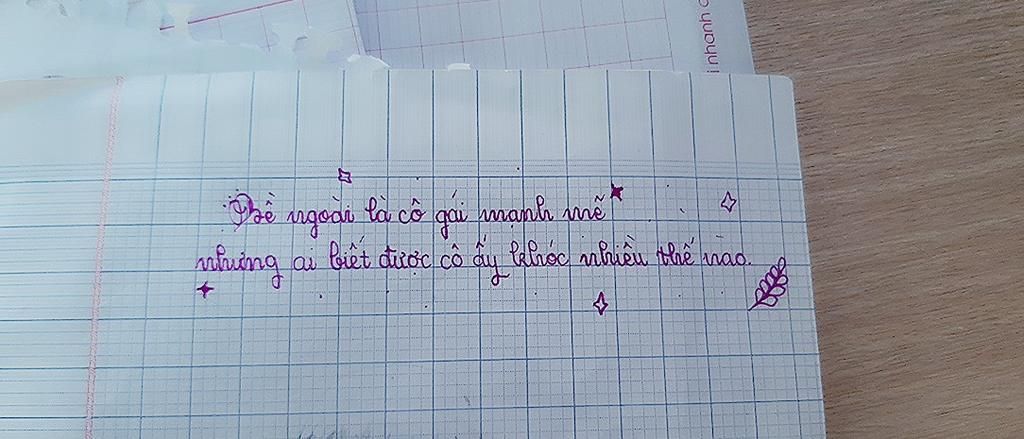 i nhanh c
Bề ngoài là cô gái mạnh mẽ
nhưng ai biết được cô ấy khóc nhiều thế nào.